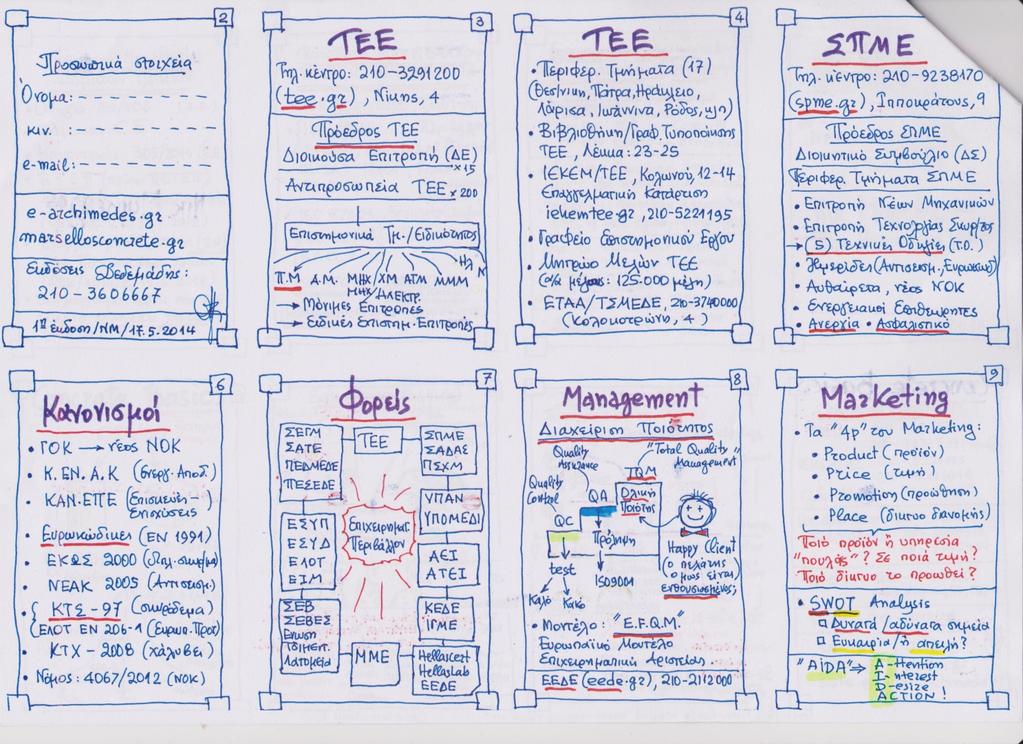 2
Προσωπικά στοιχεία
Όνομα:
κιν. :
e-mail:
e-archimedes.gr
marsellosconcrete.gr
Εκδόσεις Βεδεμάδης:
210-3606667
1η έκδοση/ΝΜ/17.5.2014
3
ΤΕΕ
Τηλ. κέντρο: 210-3291200
(tee.gr), Νίκης, 4
Πρόεδρος ΤΕΕ
Διοικούσα Επιτροπή (ΔΕ) x15
Αντιπροσωπεία ΤΕΕ x 200
Επιστημονικά Τμ./Ειδικότητας
Π.Μ Α.Μ. ΜΗΧ/ΧΜ ΑΤΜ ΜΜΜ Ηλ Ν
ΜΗΧ/ΗΛΕΚΤΡ.
→ Μόνιμες Επιτροπές
→ Ειδικές Επιστημ. Επιτροπές
4
ΤΕΕ
• Περιφερ. Τμήματα (17)
(Θεσ/νίκη, Πάτρα, Ηράκλειο,
Λάρισα, Ιωάννινα, Ρόδος, κλπ)
• Βιβλιοθήκη/Γραφ. Τυποποίησης
ΤΕΕ, Λέκκα: 23-25
• ΙΕΚΕΜ/ΤΕΕ, Κολωνού, 12-14
Επαγγελματική Κατάρτιση
iekemtee.gr, 210-5221195
• Γραφείο Επιστημονικού Έργου
• Μητρώο Μελών ΤΕΕ
(α/α μέλους: 125.000 μέλη)
• ΕΤΑΑ/ΤΣΜΕΔΕ, 210-3740000
(Κολοκοτρώνη, 4)
ΣΠΜΕ
Τηλ. κέντρο: 210-9238170
(spme.gr), Ιπποκράτους, 9
Πρόεδρος ΣΠΜΕ
Διοικητικό Συμβούλιο (ΔΣ)
Περιφερ. Τμήματα ΣΠΜΕ
• Επιτροπή Νέων Μηχανικών
• Επιτροπή Τεχνολογίας Σκυρ/τος
→ (5) Τεχνικές Οδηγίες (Τ.Ο.)
• Ημερίδες (Αντισεισμ., Ευρωκώδ)
• Αυθαίρετα, νέος ΝΟΚ
• Ενεργειακοί Επιθεωρητες
• Ανεργία • Ασφαλιστικό
6
Κανονισμοί
• ΓΟΚ → νέος ΝΟΚ
• Κ.ΕΝ.Α.Κ (Ενεργ. Αποδ.)
• ΚΑΝ.ΕΠΕ (Επισκευές-
Ενισχύσεις
• Ευρωκώδικες (ΕΝ 1991)
• ΕΚΩΣ 2000 (οπλ. σκυρ/μα)
• ΝΕΑΚ 2005 (Αντισεισμ.)
• { ΚΤΣ-97 (σκυρόδεμα)
(ΕΛΟΤ ΕΝ 206-1 (Ευρωπ. Προτ)
• ΚΤΧ-2008 (χάλυβες)
• Νόμος: 4067/2012 (ΝΟΚ)
7
Φορείς
ΣΕΓΜ
ΣΑΤΕ
ΠΕΔΜΕΔΕ
ΠΕΣΕΔΕ
ΤΕΕ
ΣΠΜΕ
ΣΑΔΑΣ
ΠΣΧΜ
ΕΣΥΠ
ΕΣΥΔ
ΕΛΟΤ
ΕΙΜ
Επιχειρηματ.
Περιβάλλον
ΥΠΑΝ
ΥΠΟΜΕΔΙ
ΑΕΙ
ΑΤΕΙ
ΣΕΒ
ΣΕΒΕΣ
Ένωση
Τσιμεντ.
Λατομεία
ΜΜΕ
ΚΕΔΕ
ΙΓΜΕ
Hellascert
HellasLab
ΕΕΔΕ
8
Management
Διαχείριση Ποιότητος
Quality Assurance
"Total Quality Management"
TQM
Quality Control
QA
Ολική Ποιότης
QC
Πρόληψη
test
Happy Client
(ο πελάτης
μας είναι
ενθουσιασμένος;
ISO9001
Καλό Κακό
• Μοντέλο: "E.F.Q.M."
Ευρωπαϊκό Μοντέλο
Επιχειρηματικής Αριστείας.
ΕΕΔΕ (eede.gr), 210-2112000
9
Marketing
• Τα "4p" του Marketing:
• Product (προϊόν)
• Price (τιμή)
• Promotion (προώθηση)
• Place (δίκτυο διανομής)
Ποιό προϊόν ή υπηρεσία
"πουλάς"? Σε ποιά τιμή?
Ποιό δίκτυο το προωθεί?
• SWOT Analysis
Δυνατά/αδύνατα σημεία
Ευκαιρία/ή απειλή?
"AiDA" → A-ttention
I-nterest
D-esire
ACTION!